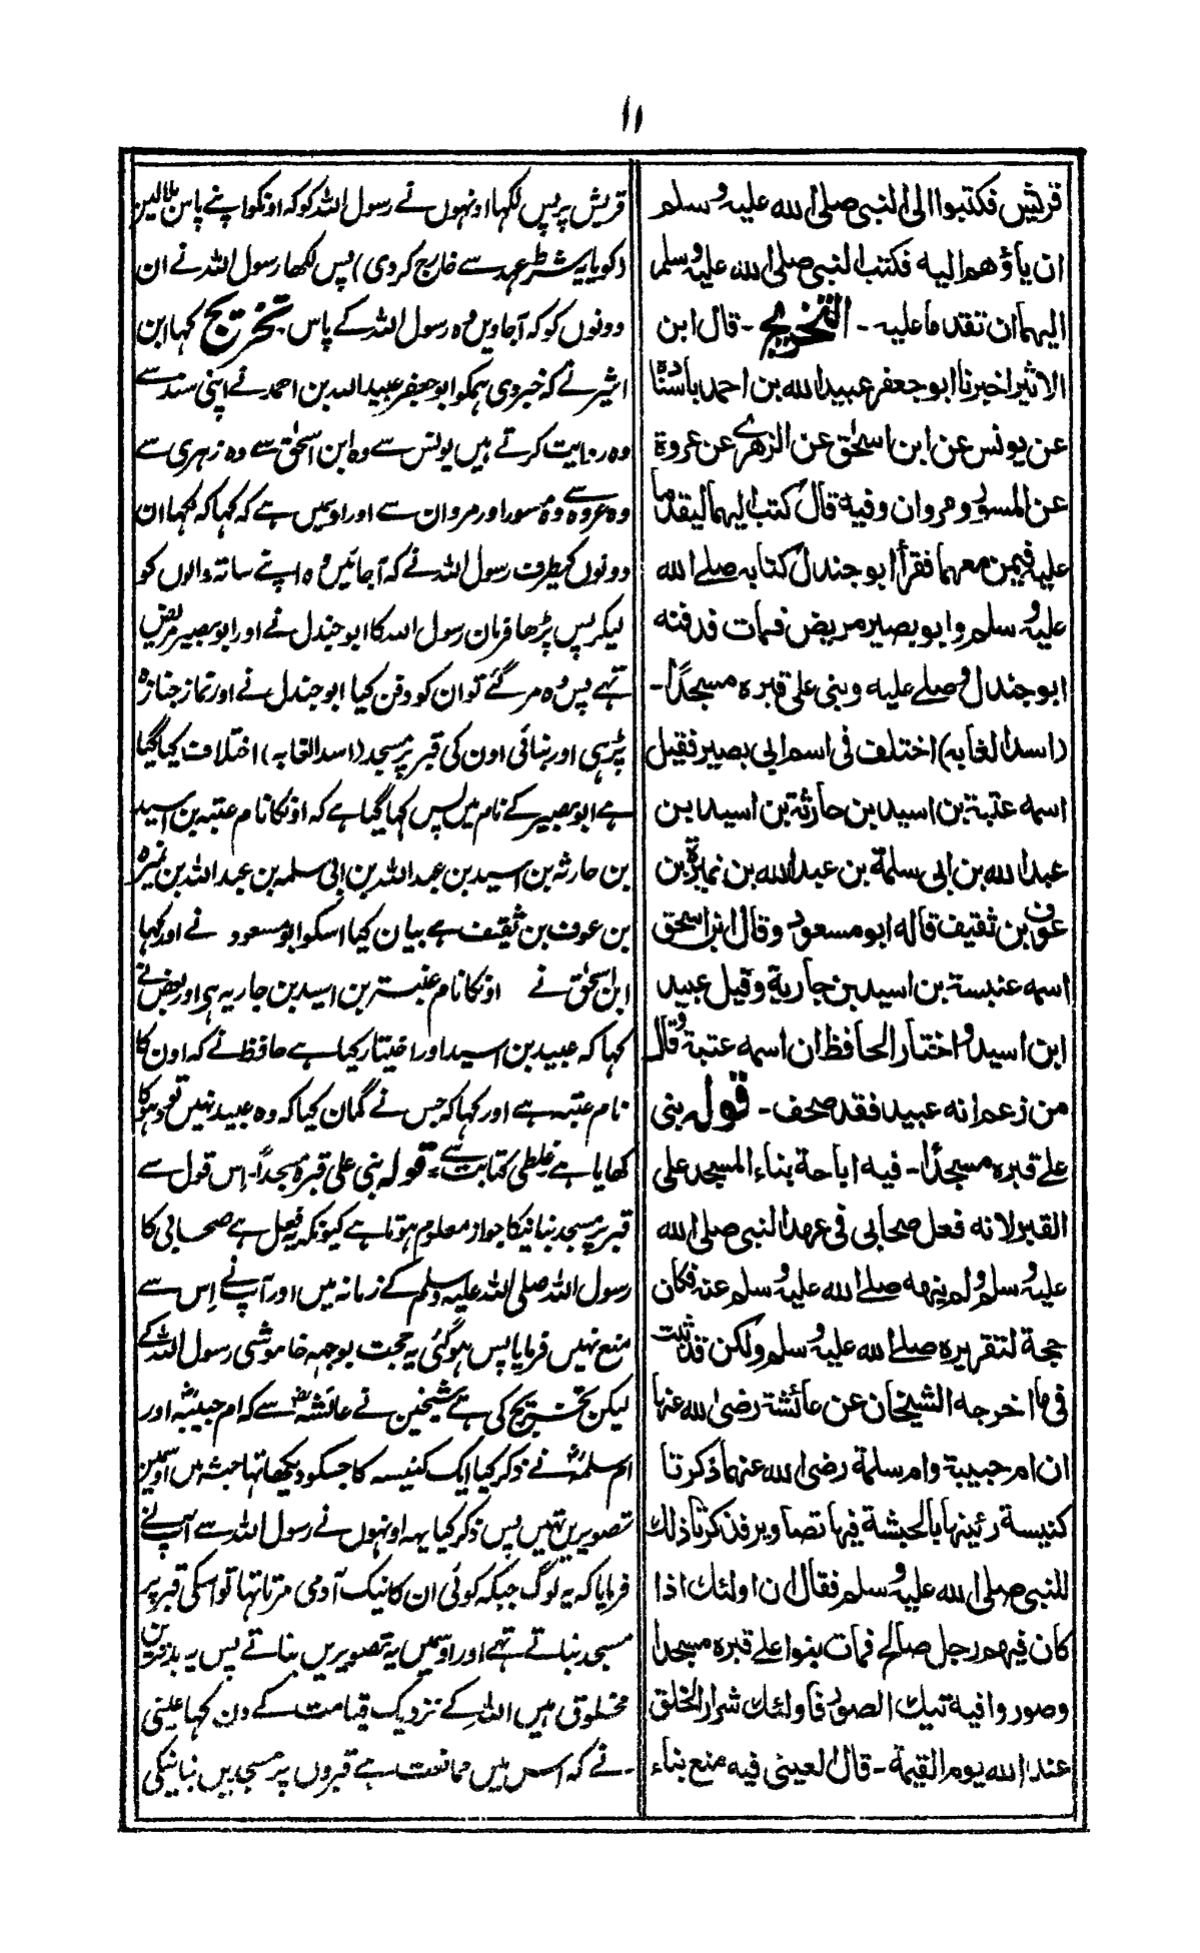 ۱۱
قریش فکتبوا الی النبی صلی الله علیہ وسلم
ان یاؤهم الیه فکتب النبی صلی الله علیہ وسلم
الیهما ان تقدما علیه ۔ التخریج ۔ قال ابن
الاثیر اخبرنا ابو جعفر عبید الله بن احمد باسناده
عن یونس عن ابن اسحٰق عن الزهرے عن عروة
عن المسور ومروان وفیه قال کتب الیهما لیقدما
علیه فیمن معهما فقرأ ابو جندل کتابه صلے الله
علیہ وسلم وابو بصیر مریض فمات فدفنه
ابو جندل وصلے علیه وبنی علی قبره مسجدًا ۔
(اسد الغابه) اختلف فی اسم ابی بصیر فقیل
اسمه عتبة بن اسید بن حارثة بن اسید ابن
عبد الله بن ابی سلمة بن عبد الله بن نمیرة بن
عوف بن ثقیف قاله ابو مسعود وقال ابن اسحق
اسمه عنبسة بن اسید بن جاریة وقیل عبید
ابن اسید واختار الحافظ ان اسمه عتبة وقال
من زعم انه عبید فقد صحف ۔ قوله بنی
علے قبره مسجدًا ۔ فیه اباحة بناء المسجد علی
القبر لانه فعل صحابی فی عهد النبی صلی الله
علیہ وسلم ولم ینهه صلے الله علیہ وسلم عنه فکان
حجة لتقریره صلے الله علیہ وسلم ولکن قد ثبت
فی ما اخرجه الشیخان عن عائشة رضی الله عنها
ان ام حبیبة وام سلمة رضی الله عنهما ذکرتا
کنیسة رئینها بالحبشة فیها تصاویر فذکرتا ذلك
للنبی صلی الله علیہ وسلم فقال ان اولئك اذا
کان فیهم رجل صالح فمات بنوا علے قبره مسجدا
وصوروا فیه تیك الصور فاولئك شرار الخلق
عند الله یوم القیمة ۔ قال العینی فیه منع بناء
قریش پر پس لکہا اونہوں نے رسول اللہ کو کہ اونکو اپنے پاس بلالیں
(گویا یہ شرط عہد سے خارج کردی) پس لکھا رسول اللہ نے ان
دونوں کو کہ آجاویں وہ رسول اللہ کے پاس ۔ تخریج کہا ابن
اثیر نے کہ خبر دی ہمکو ابو جعفر عبید اللہ بن احمد نے اپنی سند سے
وہ روایت کرتے ہیں یونس سے وہ ابن اسحٰق سے وہ زہری سے
وہ عروہ سے وہ مسور اور مروان سے اور اوسمیں ہے کہ کہا کہ لکہا ان
دونوں کیطرف رسول اللہ نے کہ آجائیں وہ اپنے ساتہ والوں کو
لیکر پس پڑھا فرمان رسول اللہ کا ابو جندل نے اور ابو بصیر مریض
تہے پس وہ مر گئے تو ان کو دفن کیا ابو جندل نے اور نماز جنازہ
پڑہی اور بنائی اون کی قبر پر مسجد (اسد الغابہ) اختلاف کیا گیا
ہے ابو بصیر کے نام میں پس کہا گیا ہے کہ اونکا نام عتبہ بن اسید
بن حارثہ بن اسید بن عبد اللہ بن ابی سلمہ بن عبد اللہ بن نمیرہ
بن عوف بن ثقیف ہے بیان کیا اسکو ابو مسعود نے اور کہا
ابن اسحٰق نے اونکا نام عنبسہ بن اسید بن جاریہ ہی اور بعض نے
کہا کہ عبید بن اسید اور اختیار کیا ہے حافظ نے کہ اون کا
نام عتبہ ہے اور کہا کہ جس نے گمان کیا کہ وہ عبید نہیں تو دہوکا
کھایا ہے غلطی کتابت سے ۔ قولہ بنی علی قبرہ مسجداً ۔ اِس قول سے
قبر پر مسجد بنانیکا جواز معلوم ہوتا ہے کیونکہ یہ فعل ہے صحابی کا
رسول اللہ صلی اللہ علیہ وسلم کے زمانہ میں اور آپ نے اِس سے
منع نہیں فرمایا پس ہوگئی یہ حجت بوجہہ خاموشی رسول اللہ کے
لیکن تخریج کی ہے شیخین نے عائشہؓ سے کہ ام حبیبہؓ اور
ام سلمہؓ نے ذکر کیا ایک کنیسہ کا جسکو دیکھا تہا حبشہ میں اوسمیں
تصویریں تہیں پس ذکر کیا یہہ اونہوں نے رسول اللہ سے آپ نے
فرمایا کہ یہ لوگ جبکہ کوئی ان کا نیک آدمی مرتا تہا تو اسکی قبر پر
مسجد بناتے تہے اور اوسمیں یہ تصویریں بناتے پس یہ بدترین
مخلوق ہیں اللہ کے نزدیک قیامت کے دن کہا عینی
نے کہ اس میں ممانعت ہے قبروں پر مسجدیں بنانیکی